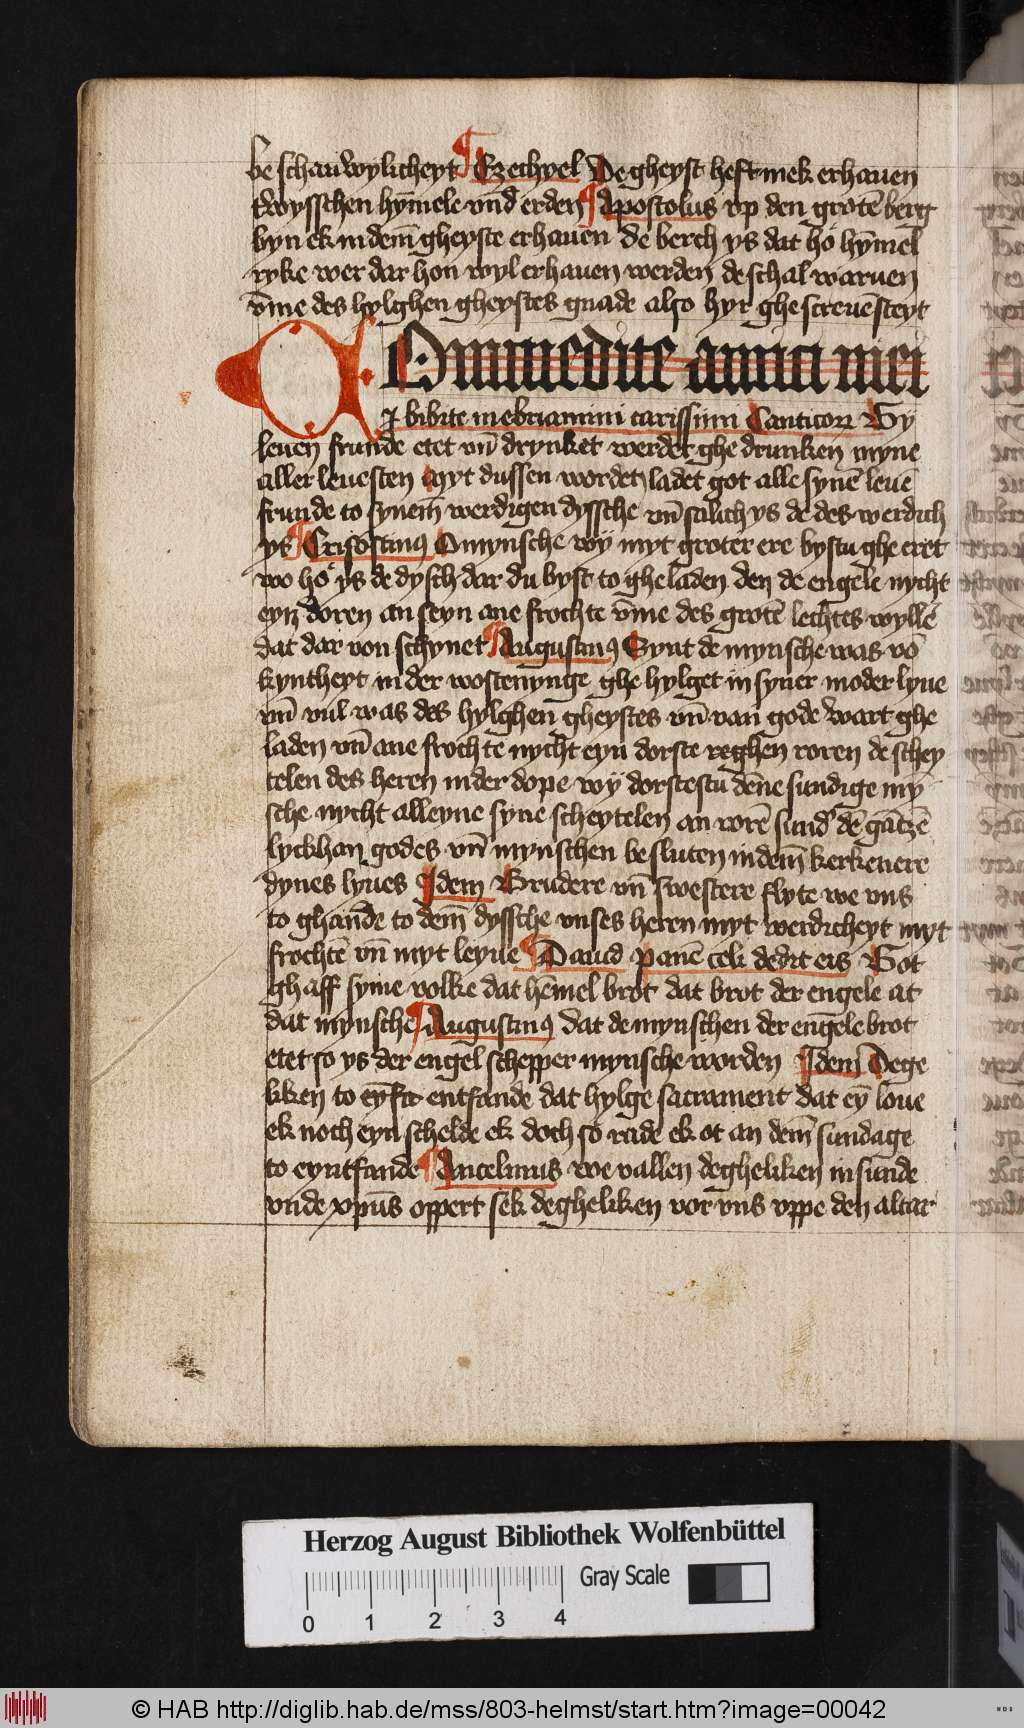 be schauwylicheyt ¶ Ezechyel De gheyst heft mek erhauen
twysschen hȳmele vnd erden ¶ Apostolus vp den grotē berg
byn ek in dem̄ gheyste erhauen de berch ys dat ho hȳmel
ryke wer dar hon wyl erhauen werden de schal waruen
v̄me des hylghen gheystes gnade also hyr ghe screuē steyt
COmmedite amici mei
⁊ bibite inebriamini carissimi Canticoꝝ Gy
leuen frunde etet vn̄ drynket werdet ghe drunken myne
aller leuesten Myt dussen worden ladet got alle synē leuē
frunde to synem̄ werdigen dyssche vn̄ salich ys de des werdich
ys ¶ Crisostimꝰ O mynsche wy myt groter ere bystu ghe eret
wo ho ys de dysch dar du byst to ghe laden den de engele nycht
eyn doren an seyn ane frochte v̄me des grotē lechtes wyllē
dat dar von schynet ¶ Augustinꝰ Synt de mynsche was vō
kyntheyt in der wostenynge ghe hylget in syner moder lyue
vn̄ vul was des hylghen gheystes vn̄ van gode wart ghe
laden vn̄ ane frochte nycht eyn dorste reghen roren de schey
telen des heren in der dope wy dorstestu dēne sundige my
sche nycht alleyne syne scheytelen an rorē sund' dē gātzē
lyckhan godes vn̄ mynschen be sluten in dem̄ kerkenere
dynes lyues Idem Brudere vn̄ swestere flyte we vns
to ghande to dem̄ dyssche vnses heren myt werdicheyt myt
frochtē vn̄ myt leyue ¶ Dauid panē celi dedit eis Got
ghaff syme volke dat hemel brot dat brot der engele at
dat mynsche ¶ Augustinꝰ dat de mynschen der engele brot
etet so ys der engel schepper mynsche worden Idem Dege
liken to entfande dat hylge sacrament dat eȳ loue
ek noch eyn schelde ek doch so rade ek ot an dem̄ sundage
to eyntfande ¶ Ancelmus we vallen degheliken in sunde
vnde xp̄us oppert sek degheliken vor vns vppe den altar
Herzog August Bibliothek Wolfenbüttel
Gray Scale
0 1 2 3 4
© HAB http://diglib.hab.de/mss/803-helmst/start.htm?image=00042